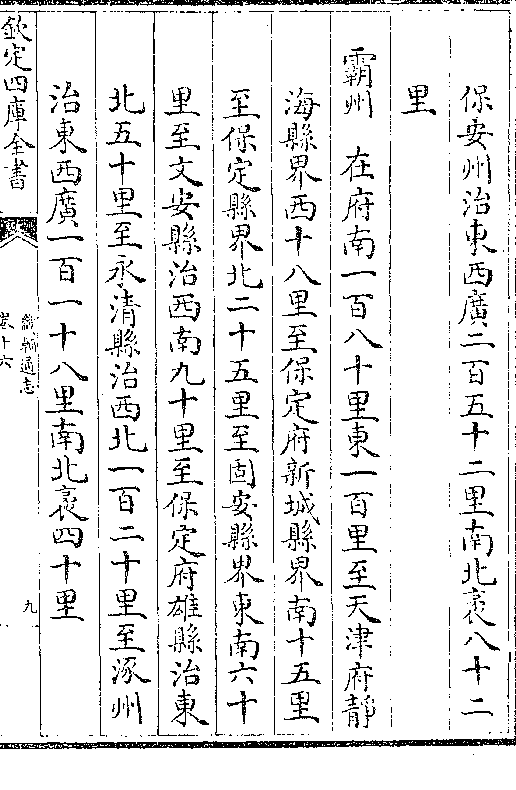 保安州治東西廣二百五十二里南北袤八十二
里
霸州 在府南一百八十里東一百里至天津府靜
海縣界西十八里至保定府新城縣界南十五里
至保定縣界北二十五里至固安縣界東南六十
里至文安縣治西南九十里至保定府雄縣治東
北五十里至永清縣治西北一百二十里至涿州
治東西廣一百一十八里南北袤四十里
欽定四庫全書
畿輔通志
卷十六
九